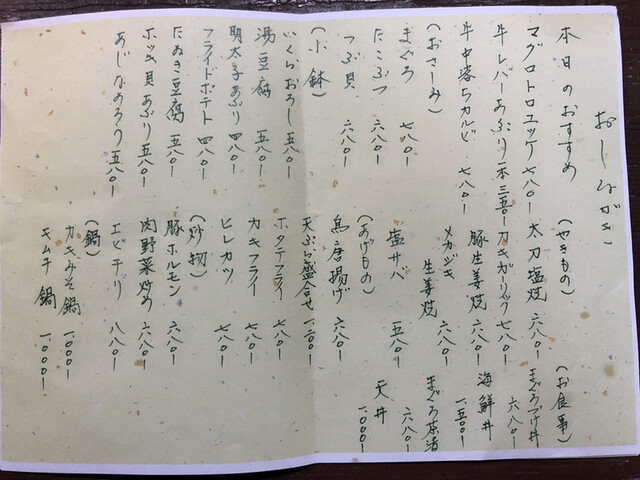 おしながき
本日のおすすめ
マグロトロユッケ 七八〇-
牛レバーあぶり 一本 三五〇-
牛中落ちカルビ 七八〇-
(おさしみ)
まぐろ 七八〇-
たこぶつ 六八〇-
つぶ貝 六八〇-
(小鉢)
いくらおろし 五八〇-
湯豆腐 五八〇-
明太子あぶり 四八〇-
フライドポテト 四八〇-
たぬき豆腐 五八〇-
ホッキ貝あぶり 五八〇-
あじなめろう 五八〇-
(やきもの)
太刀塩焼 六八〇-
カキガーリック 七八〇-
豚生姜焼 六八〇-
メカジキ
生姜焼 六八〇-
塩サバ 五八〇-
(あげもの)
鳥唐揚げ 六八〇-
天ぷら盛合せ 一二〇〇-
ホタテフライ 七八〇-
カキフライ 七八〇-
ヒレカツ 七八〇-
(炒物)
豚ホルモン 六八〇-
肉野菜炒め 六八〇-
エビチリ 八八〇-
(鍋)
カキみそ鍋 一、〇〇〇-
キムチ鍋 一、〇〇〇-
(お食事)
まぐろづけ丼 六八〇-
海鮮丼 一、五〇〇-
まぐろ茶漬 六八〇-
天丼 一、〇〇〇-